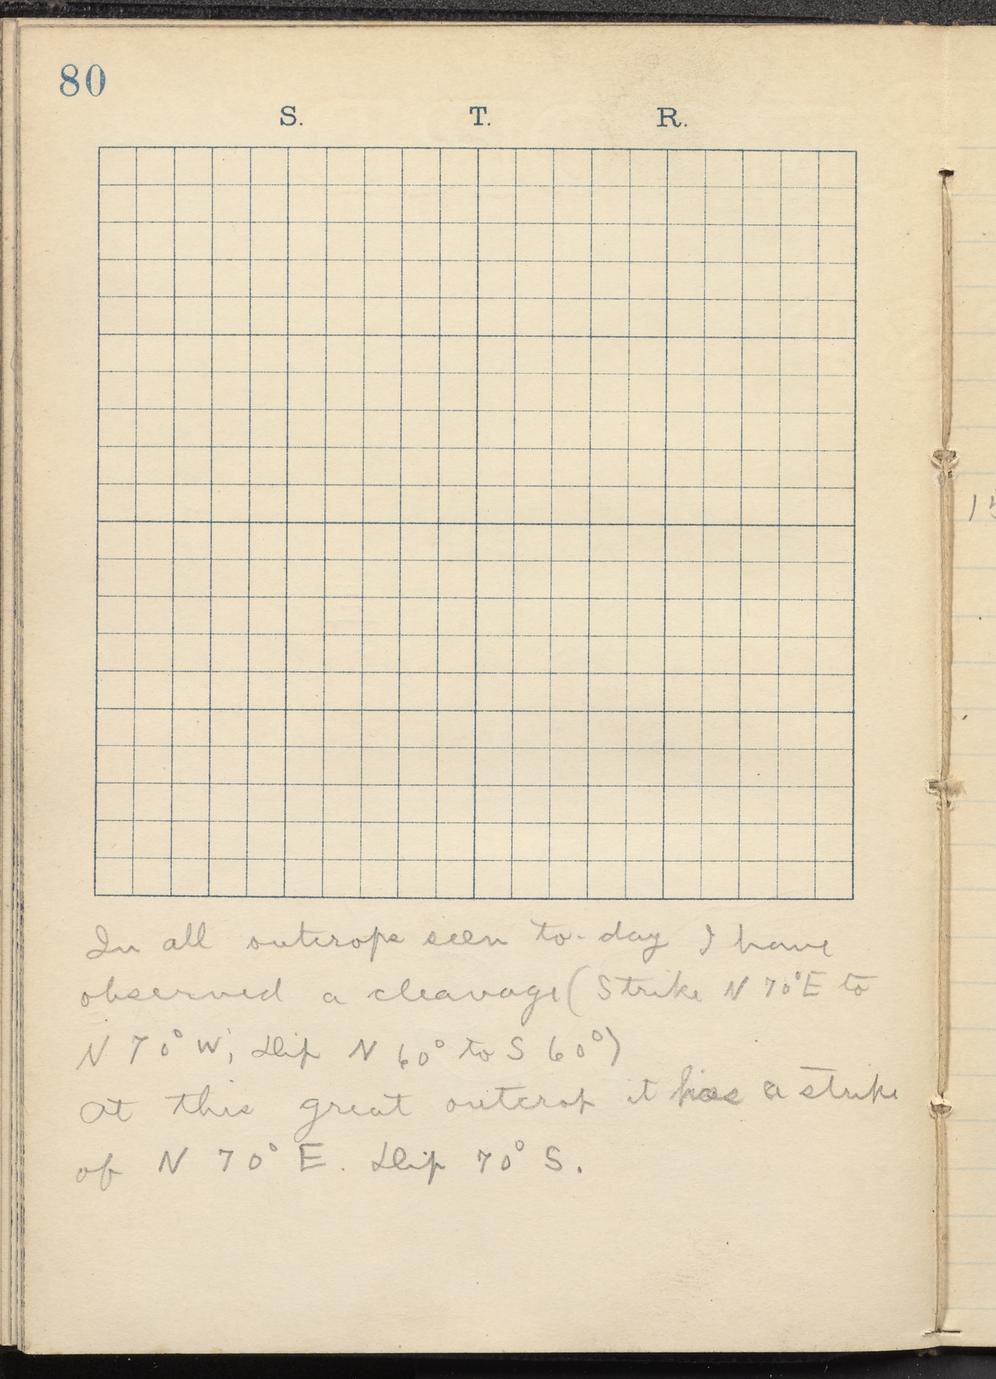 80
S. T. R.
In all outcrops seen to-day I have
observed a cleavage (Strike N 70°E to
N 70° W; Dip N 60° to S 60°)
At this great outcrop it has a strike
of N 70° E. Dip 70° S.
15